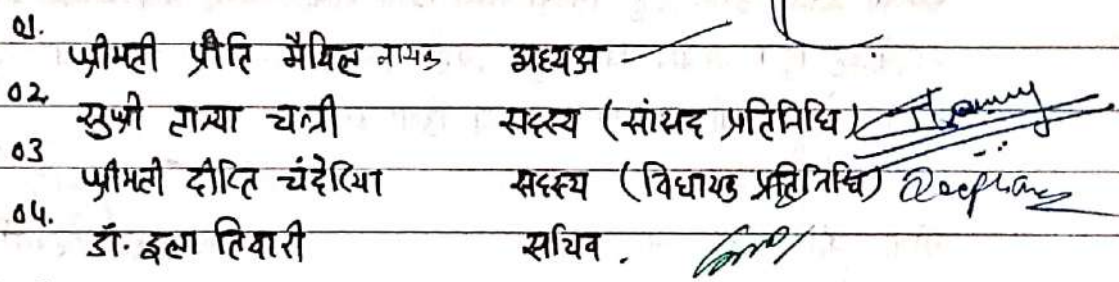 01.
श्रीमती प्रीति मैथिल नायक अध्यक्ष
02
सुश्री तान्या चन्री सदस्य (सांसद प्रतिनिधि)
03
श्रीमती दीप्ति चंदेरिया सदस्य (विधायक प्रतिनिधि)
04.
डॉ. इला तिवारी सचिव.